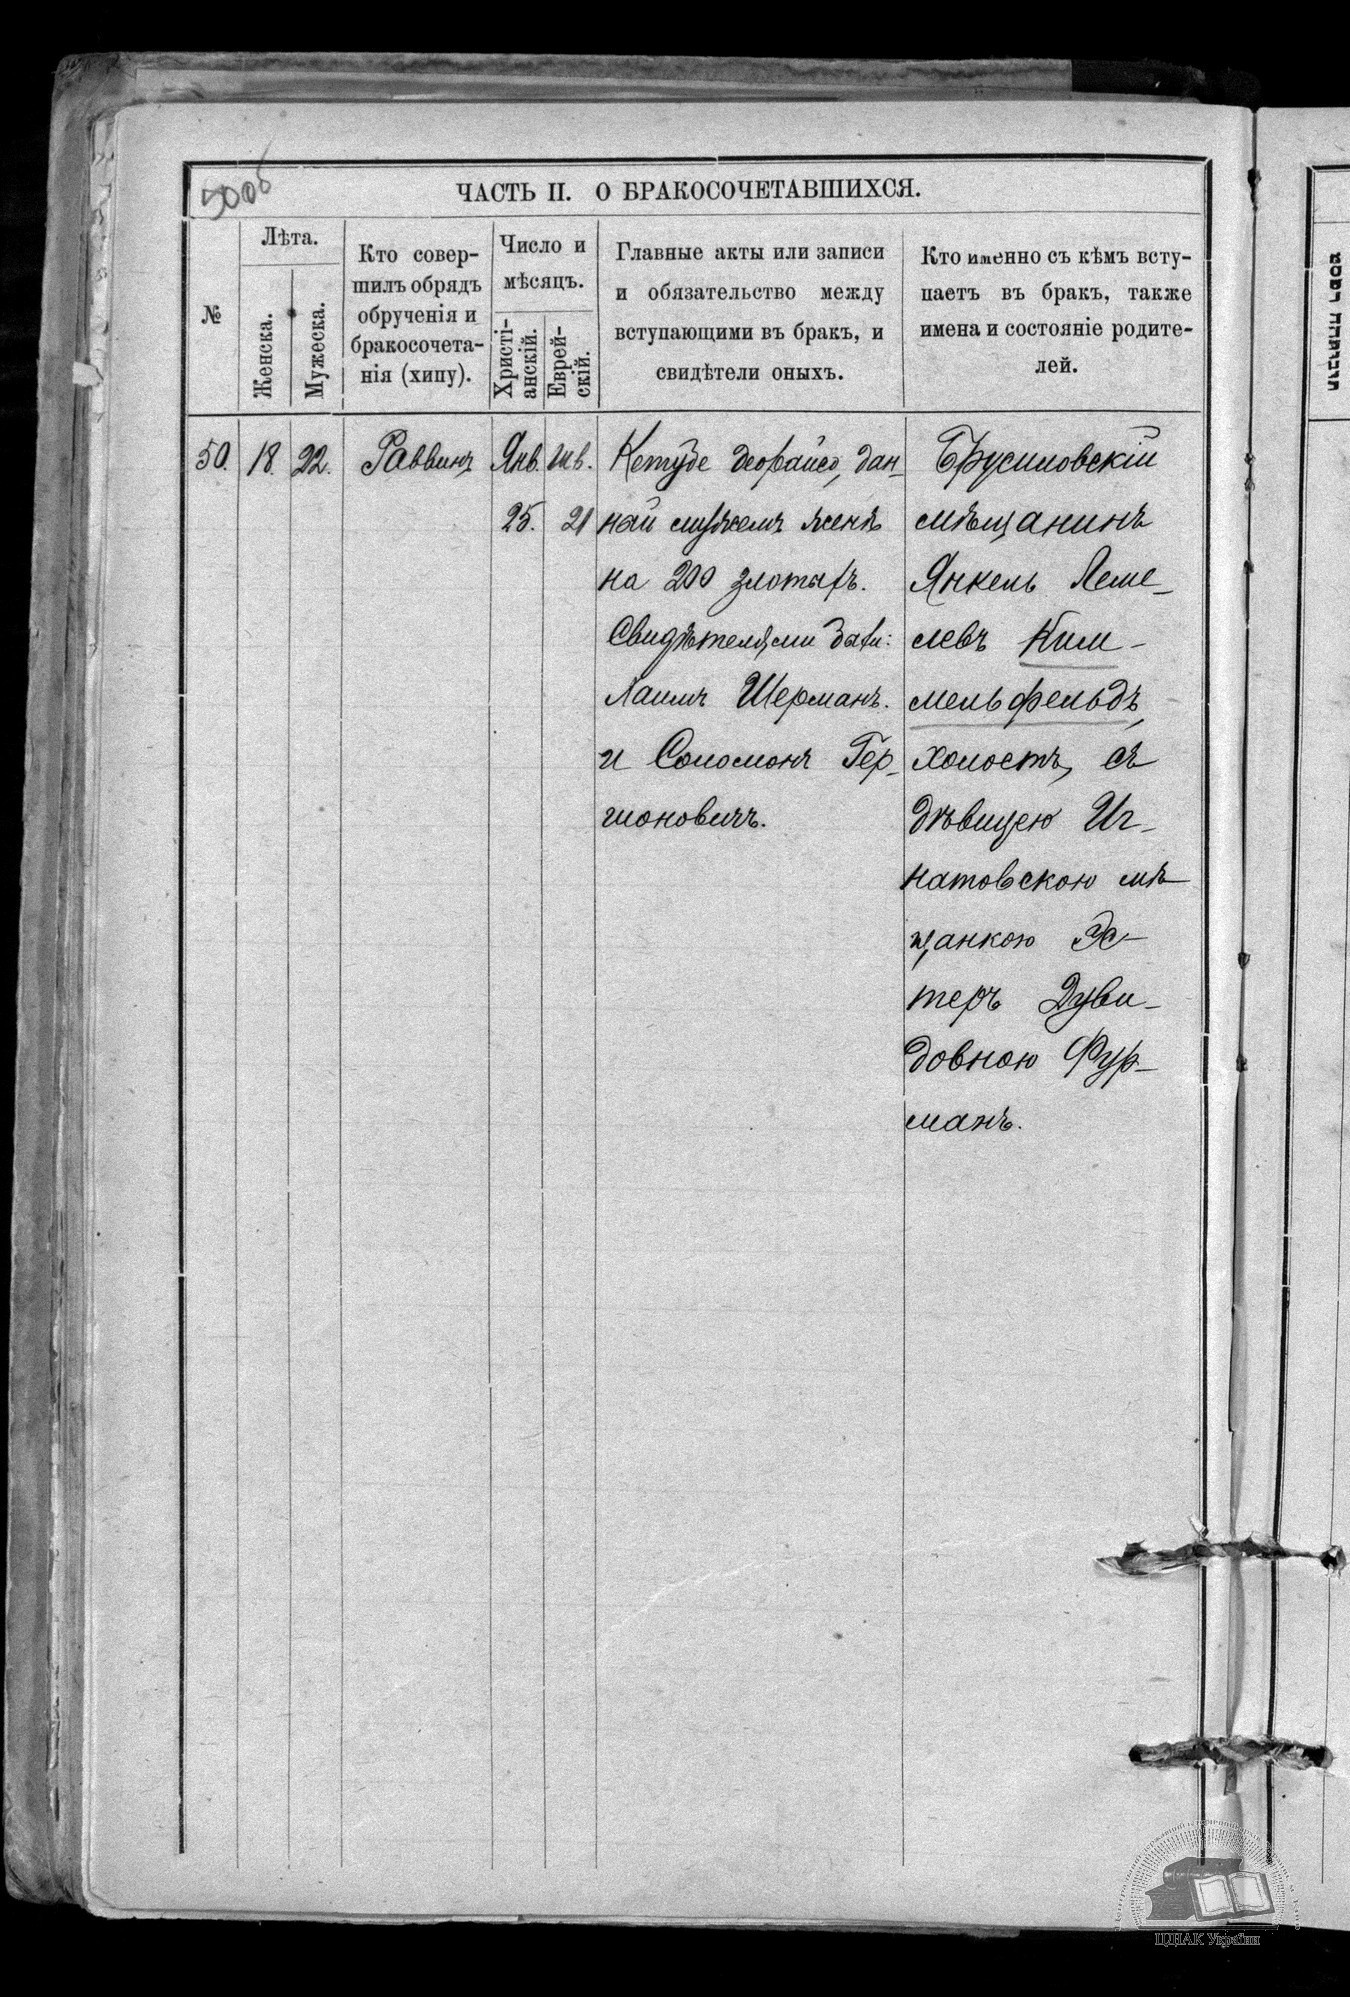 500б
ЧАСТЬ II. О БРАКОСОЧЕТАВШИХСЯ.
№
Лѣта.
Женска.
Мужеска.
Кто совер-
шилъ обрядъ
обрученія и
бракосочета-
нія (хипу).
Число и
мѣсяцъ.
Христі-
анскій.
Еврей-
скій.
Главные акты или записи
и обязательство между
вступающими въ бракъ, и
свидѣтели оныхъ.
Кто именно съ кѣмъ всту-
паетъ въ бракъ, также
имена и состояніе родите-
лей.
50. 18. 22. Раввинъ Янв. Шв.
25. 21
Кетубе деорайсо, дан-
ной мужемъ женѣ
на 200 злотыхъ.
Свидѣтелями были:
Хаимъ Шерманъ.
и Соломонъ Гер-
шоновичъ.
Брусиловскій
мѣщанинъ
Янкель Леме-
левъ Ким-
мельфельдъ,
холостъ, съ
дѣвицею Иг-
натовскою мѣ-
щанкою Эс-
теръ Дуви-
довною Фур-
манъ.
ЦДІАК України